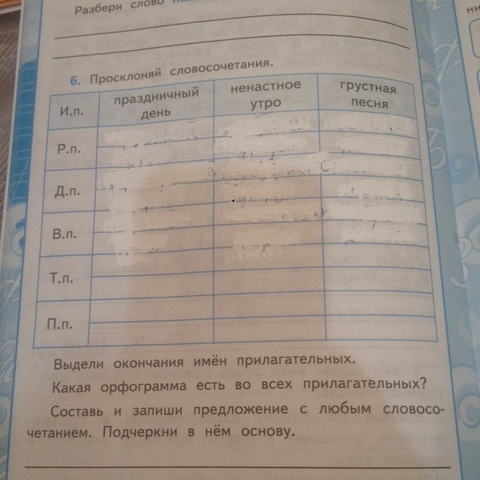 Разбери слово
6. Просклоняй словосочетания.
И.п. праздничный день ненастное утро грустная песня
Р.п.
Д.п.
В.п.
Т.п.
П.п.
Выдели окончания имён прилагательных.
Какая орфограмма есть во всех прилагательных?
Составь и запиши предложение с любым словосо-
четанием. Подчеркни в нём основу.